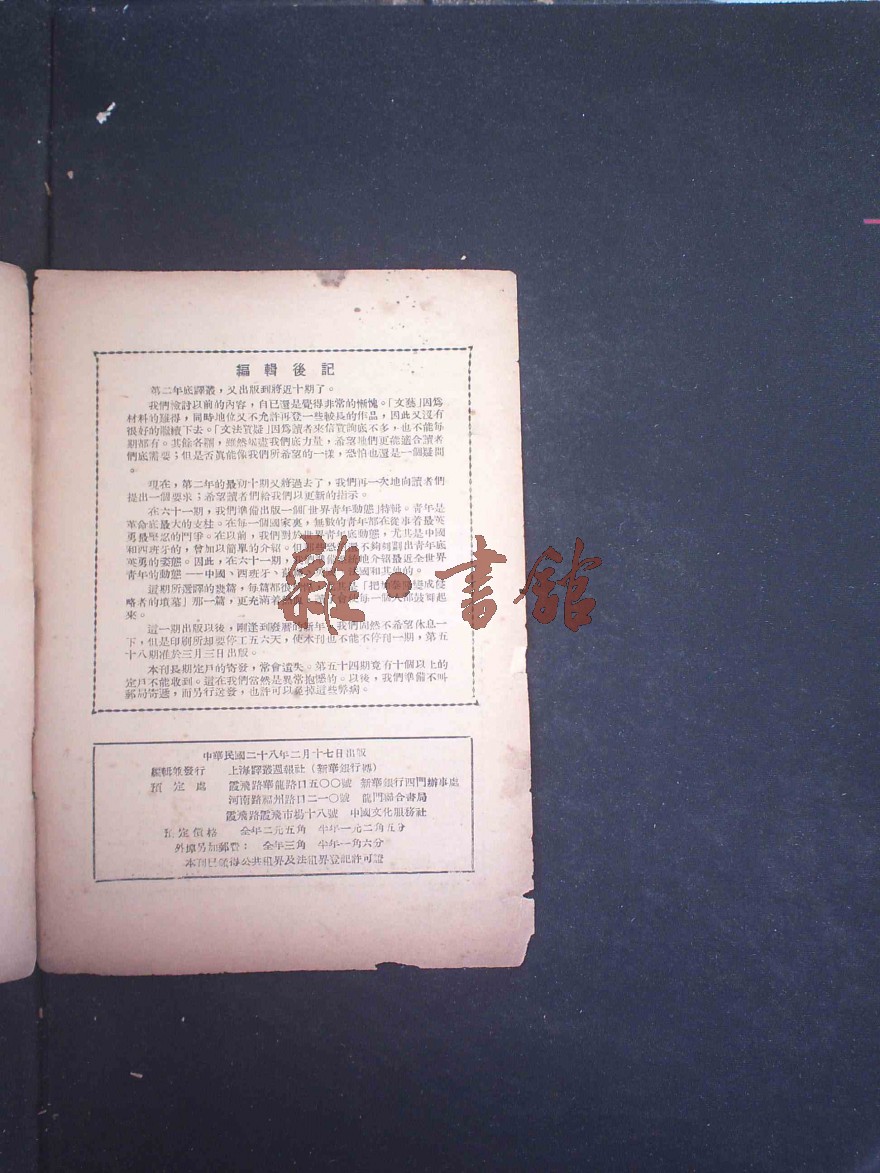 編輯後記
第二年底譯叢，又出版到將近十期了。
我們檢討以前的內容，自已還是覺得非常的慚愧。「文藝」因爲
材料的難得，同時地位又不允許再登一些較長的作品，因此又沒有
很好的繼續下去。「文法質疑」因爲讀者來信質詢底不多，也不能每
期都有。其餘各欄，雖然竭盡我們底力量，希望牠們更能適合讀者
們底需要；但是否眞能像我們所希望的一樣，恐怕也還是一個疑問
。
現在，第二年的最初十期又將過去了，我們再一次地向讀者們
提出一個要求；希望讀者們給我們以更新的指示。
在六十一期，我們準備出版一個「世界青年動態」特輯。青年是
革命底最大的支柱。在每一個國家裏，無數的青年都在從事着最英
勇最堅忍的鬥爭。在以前，我們對於世界青年底動態，尤其是中國
和西班牙的，曾加以簡單的介紹。但 不夠刻劃出青年底
英勇的姿態。因此，在六十一期， 地介紹最近全世界
青年的動態——中國、西班牙、 國和其他的。
這期所選譯的幾篇，每篇都很 是「把 變成侵
略者的墳墓」那一篇，更充滿着 每一個人都鼓舞起
來。
這一期出版以後，剛逢到廢曆的新年，我們固然不希望休息一
下，但是印刷所却要停工五六天，使本刊也不能不停刊一期，第五
十八期准於三月三日出版。
本刊長期定戶的寄發，常會遺失。第五十四期竟有十個以上的
定戶不能收到。這在我們當然是異常抱憾的。以後，我們準備不叫
郵局寄遞，而另行送發，也許可以免掉這些弊病。
中華民國二十八年二月十七日出版
編輯並發行 上海譯叢週報社（新華銀行轉）
預定處 霞飛路華龍路口五〇〇號 新華銀行西門辦事處
河南路福州路口二一〇號 龍門聯合書局
霞飛路霞飛市場十八號 中國文化服務社
預定價格 全年二元五角 半年一元二角五分
外埠另加郵費： 全年三角 半年一角六分
本刊已領得公共租界及法租界登記許可證
雜·書館